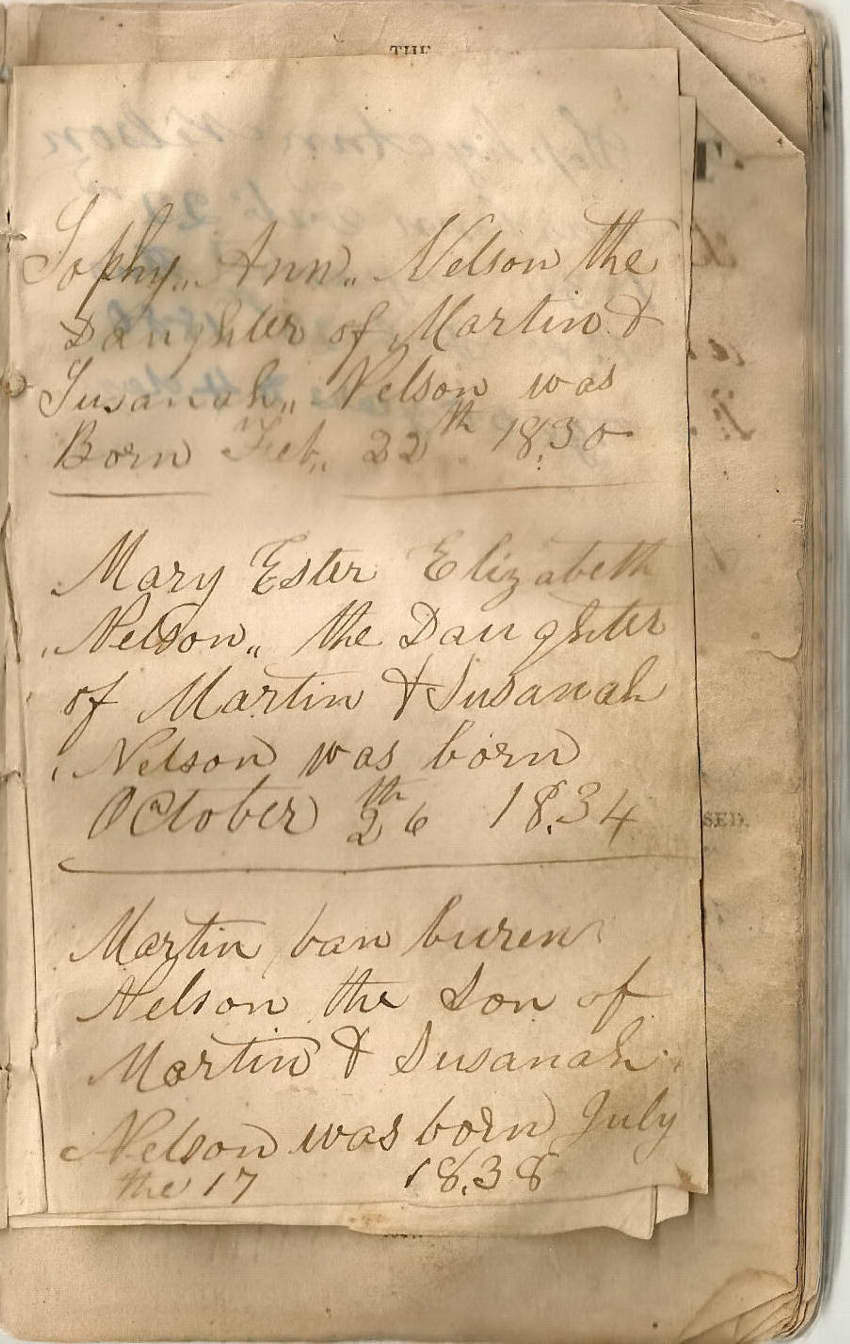 THE
Sophy,, Ann,, Nelson the
Daughter of Martin &
Susanah,, Nelson was
Born Feb,, 22th 18.30
Mary Ester Elizabeth
Nelson,, the Daughter
of Martin & Susanah
Nelson was born
October 26th 18.34
Martin van buren
Nelson the Son of
Martin & Susanah
Nelson was born July
the 17 18.38
SED.